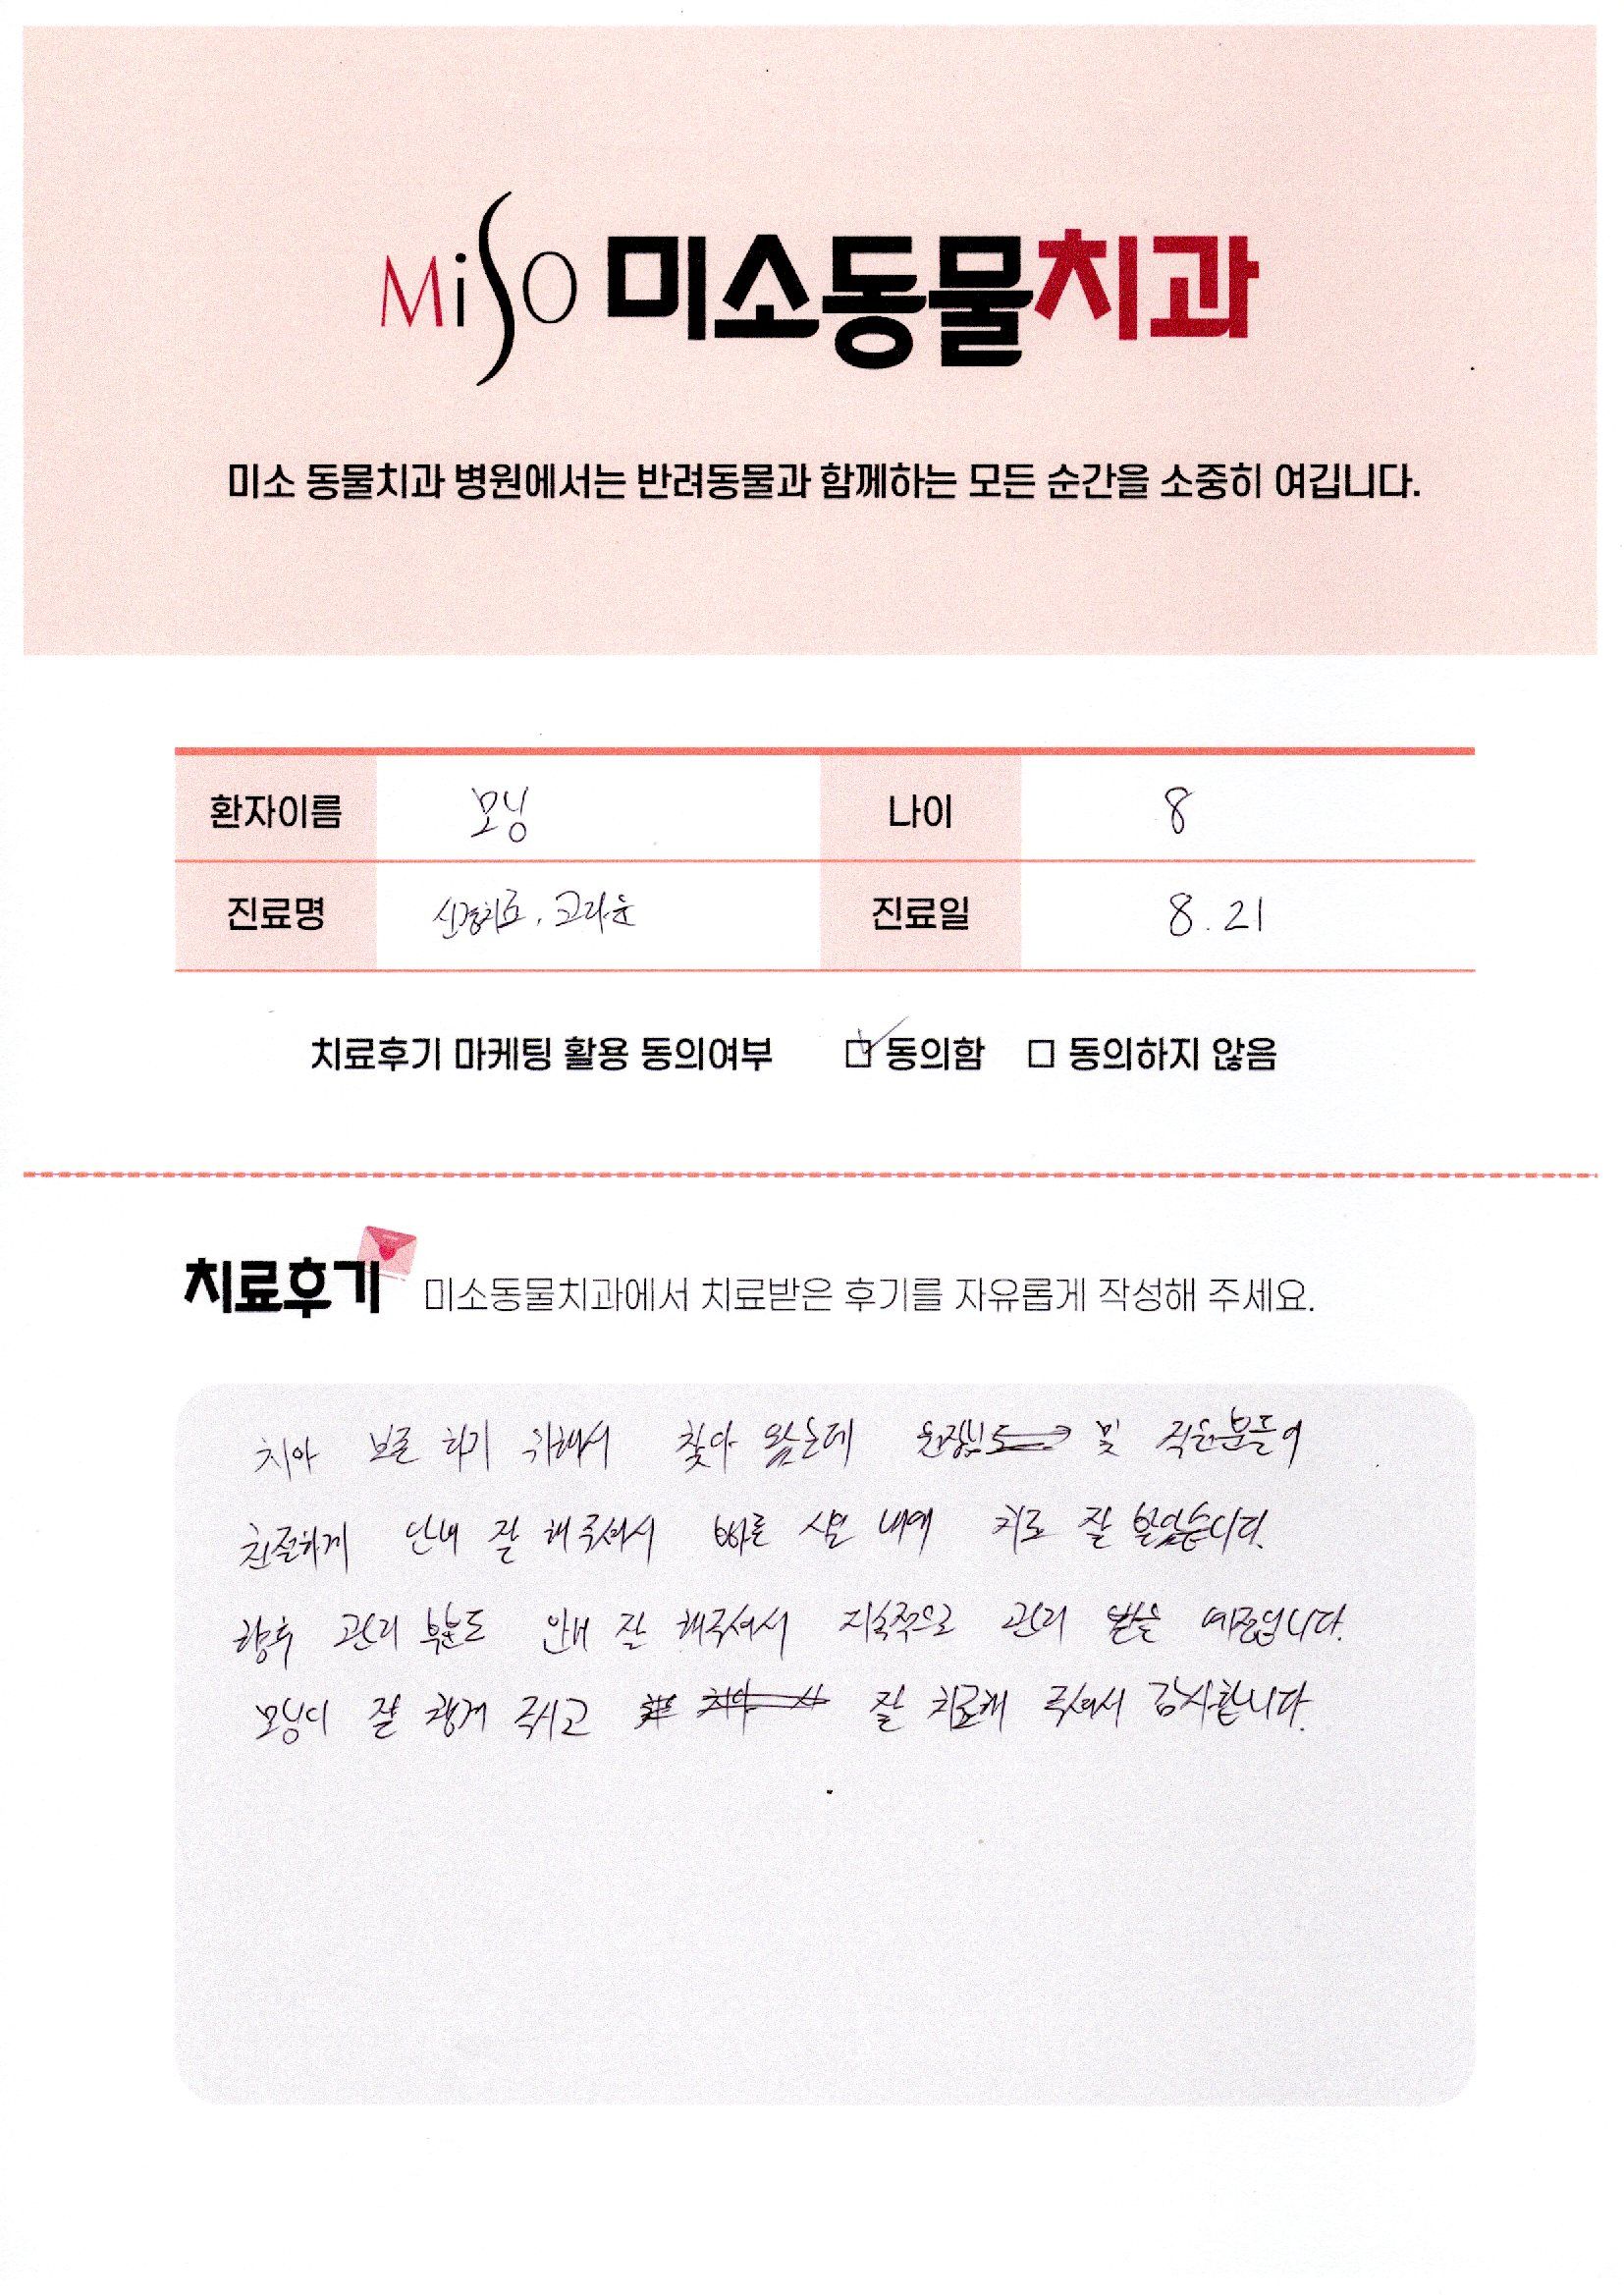 MiSO 미소동물치과
미소 동물치과 병원에서는 반려동물과 함께하는 모든 순간을 소중히 여깁니다.
환자이름 모닝 나이 8
진료명 신경치료, 크라운 진료일 8.21
치료후기 마케팅 활용 동의여부 ☑ 동의함 ☐ 동의하지 않음
치료후기 미소동물치과에서 치료받은 후기를 자유롭게 작성해 주세요.
치아 보존 하기 위해서 찾아 왔는데 원장님 및 직원분들이
친절하게 안내 잘 해주셔서 빠른 시일 내에 치료 잘 받았습니다.
향후 관리 부분도 안내 잘 해주셔서 지속적으로 관리 받을 예정입니다.
모닝이 잘 챙겨 주시고 잘 치료해 주셔서 감사합니다.